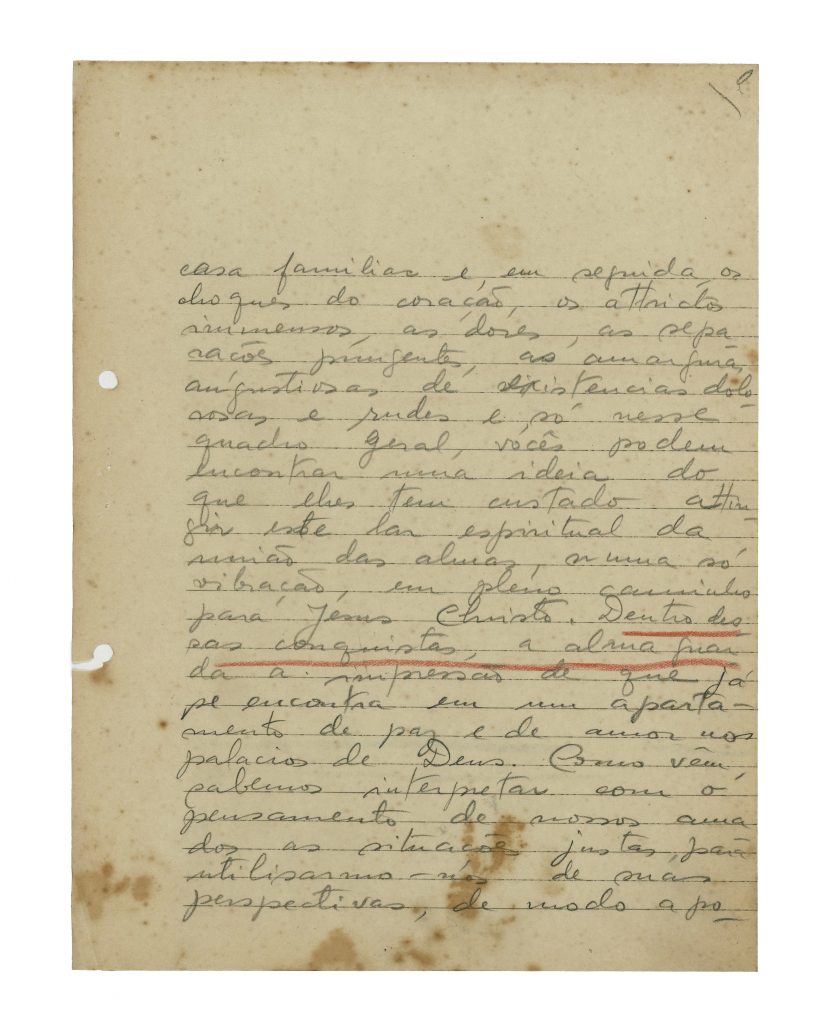 casa familiar e, em seguida, os
choques do coração, os attrictos
immensos, as dores, as sepa
rações pungentes, as amarguras
angustiosas de existencias dolo-
rosas e rudes e, só nesse
quadro geral, vocês podem
encontrar uma ideia do
que lhes tem custado attin
gir este lar espiritual da
união das almas, n'uma só
vibração, em pleno caminho
para Jesus Christo. Dentro des
sas conquistas, a alma guar
da a impressão de que já
se encontra em um aparta-
mento de paz e de amor nos
palacios de Deus. Como vêm,
sabemos interpretar com o
pensamento de nossos ama
dos as situações justas, para
utilisarmo-nos de suas
perspectivas, de modo a po-